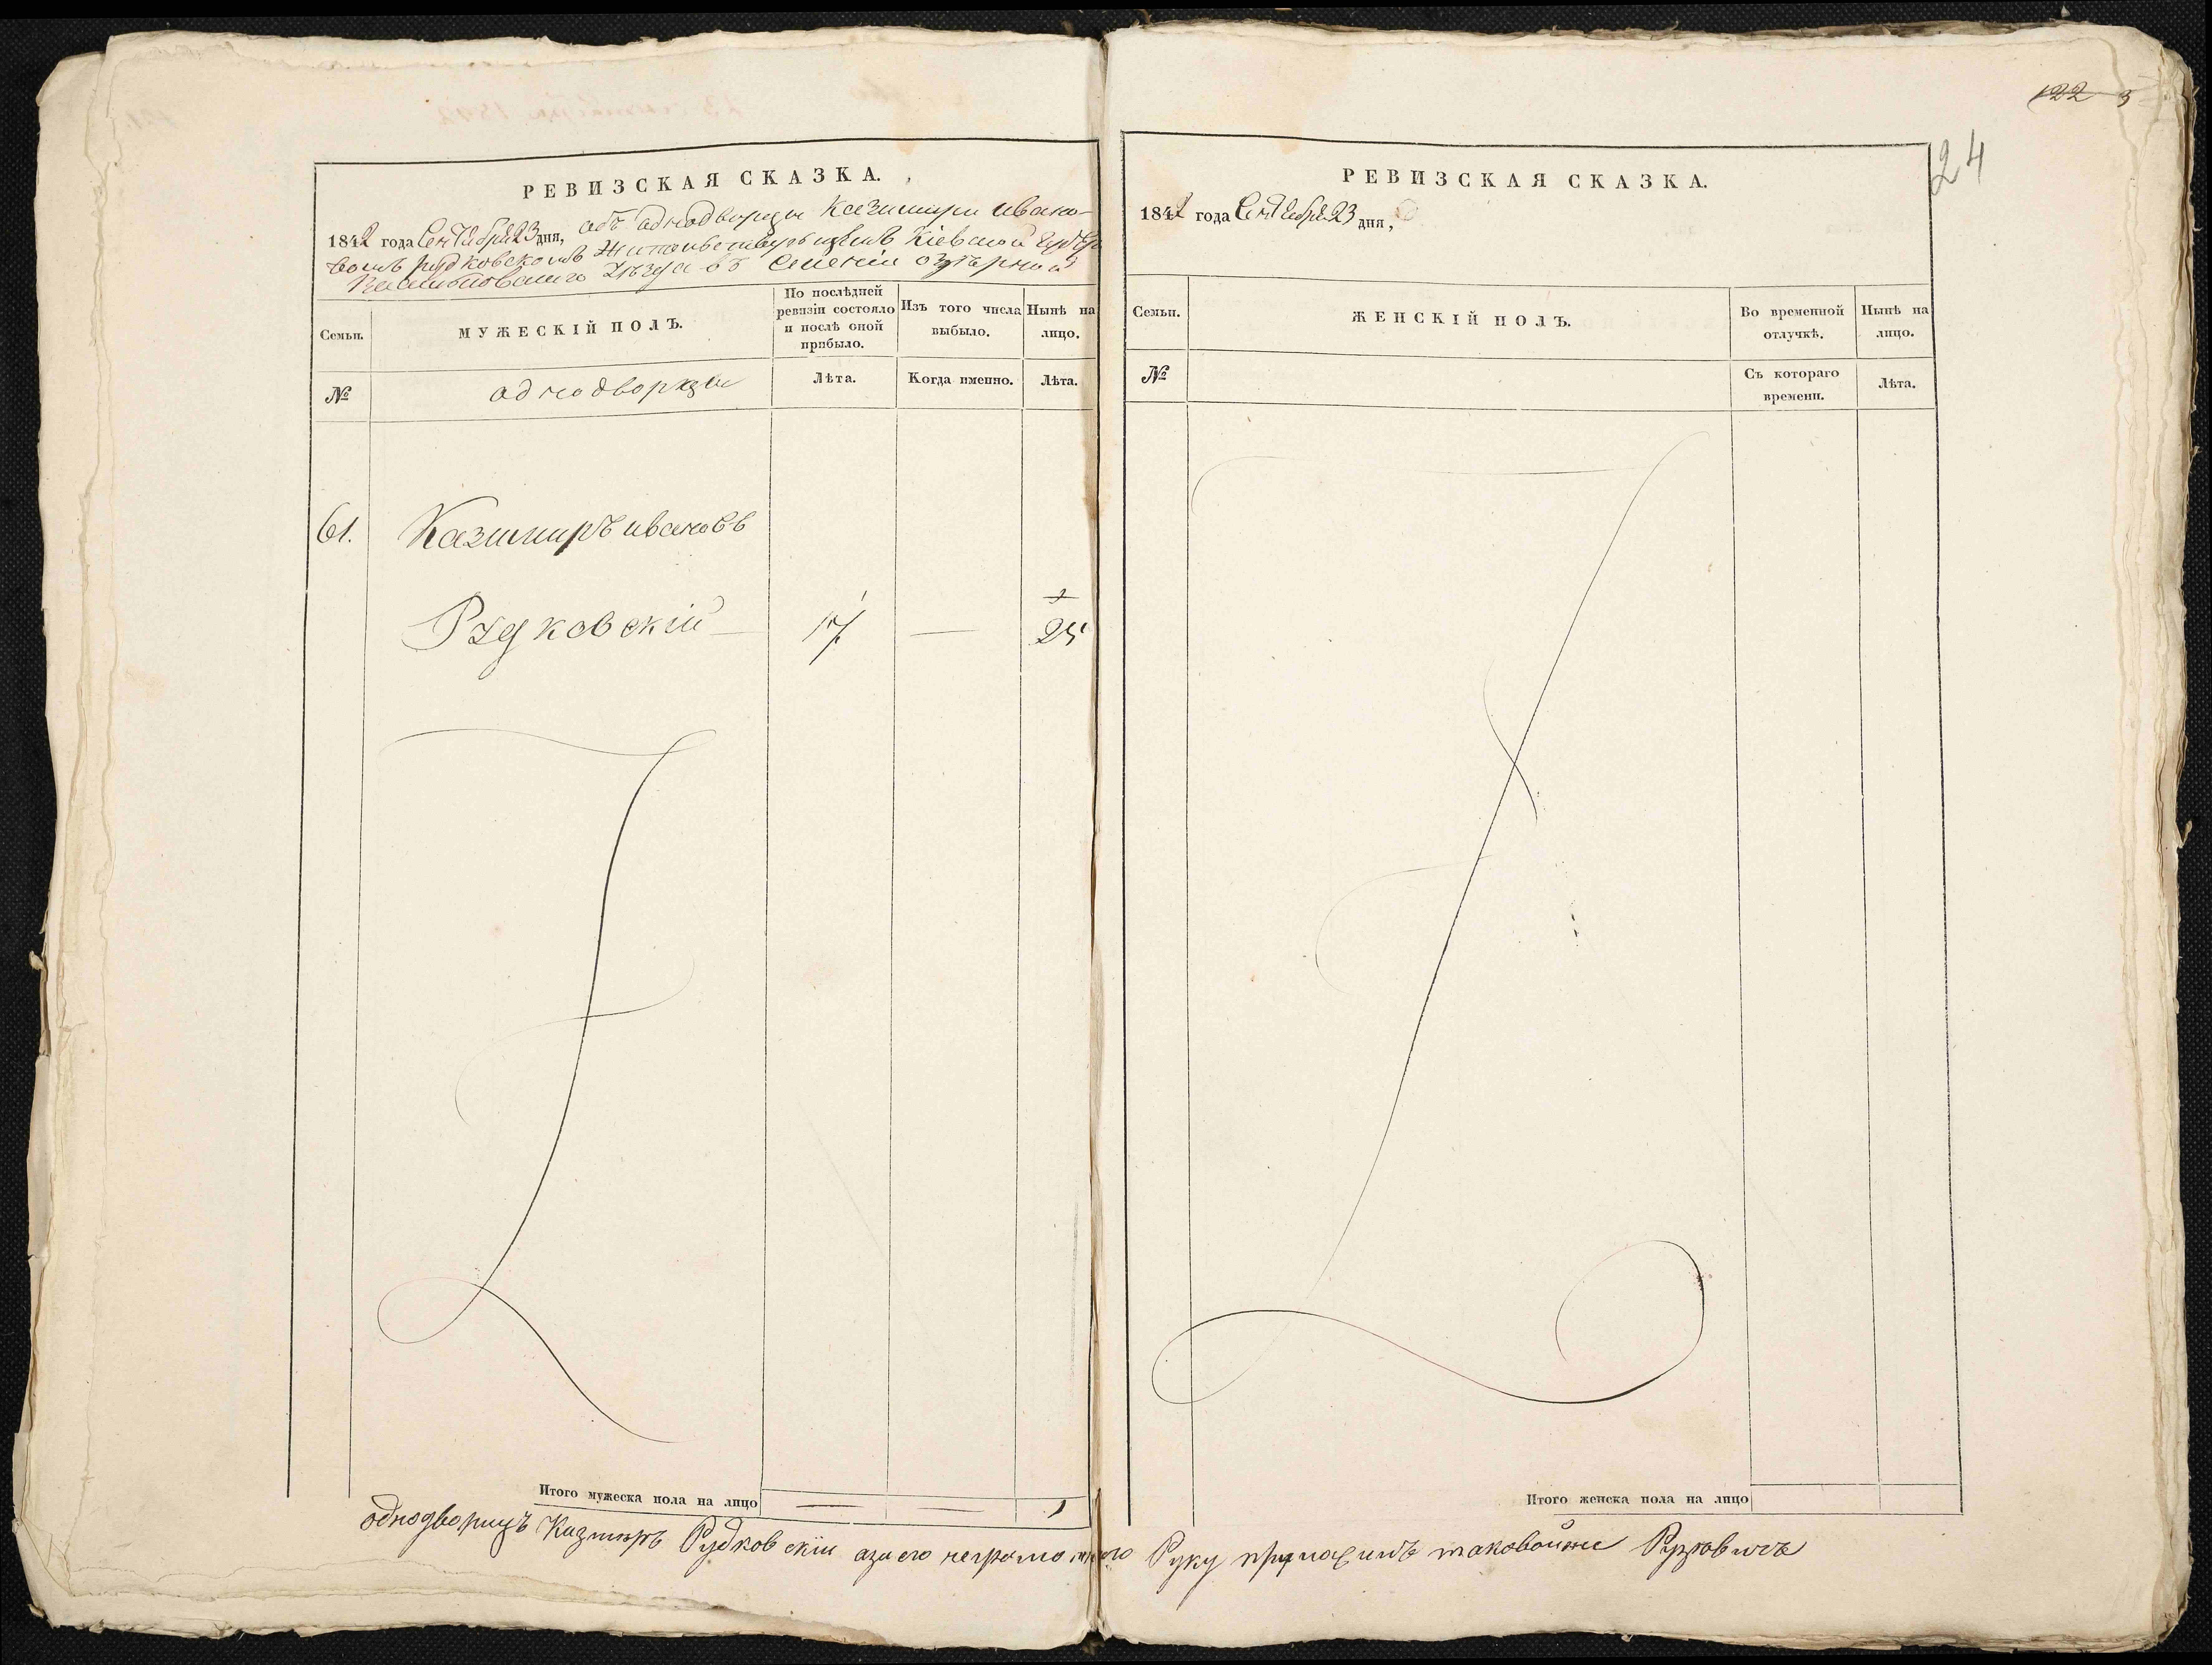 РЕВИЗСКАЯ СКАЗКА.
1842 года Сентебре 23 дня, объ аднодворцы Казимири Ивано-
вомъ рудковскомъ Жительствующемъ Кіевской Губер
уезда въ Селеніи озѣрной
Семьи.
МУЖЕСКІЙ ПОЛЪ.
По послѣдней ревизіи состояло и послѣ оной прибыло.
Изъ того числа выбыло.
Нынѣ на лицо.
№
аднодворцы
Лѣта.
Когда именно.
Лѣта.
61.
Казимиръ ивановъ
1
Рудковскій — 17 — 25
Итого мужеска пола на лицо — — 1
122 3
24
РЕВИЗСКАЯ СКАЗКА.
1842 года Сентебре 23 дня,
Семьи.
ЖЕНСКІЙ ПОЛЪ.
Во временной отлучкѣ.
Нынѣ на лицо.
№
Съ котораго времени.
Лѣта.
Итого женска пола на лицо
однодворицъ Казимиръ Рудковскій азаего неграмотного Руку приложилъ таковойже